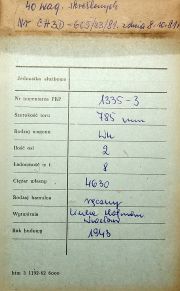 40 wag. skreślonych
Nr CH3D-605/33/81. z dnia 8.10.81r
Jednostka służbowa
Nr inwentarza PKP 1335-3
Szerokość toru 785 mm
Rodzaj wagonu Wk
Ilość osi 2
Ładowność w t 8
Ciężar własny 4630
Rodzaj hamulca ręczny
Wytwórnia Linke Hofmann
Wrocław
Rok budowy 1943